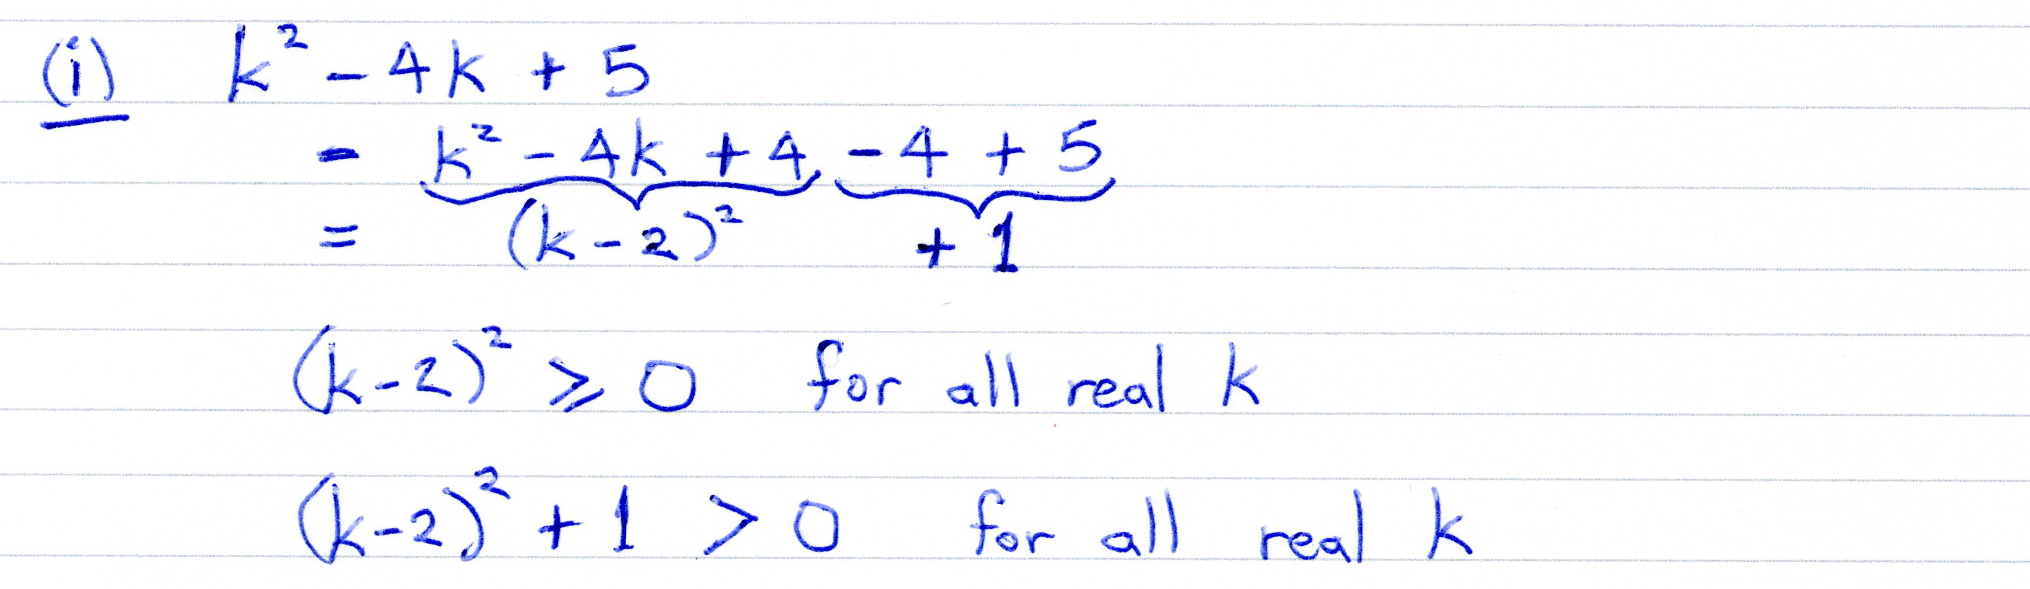 (i) k² - 4k + 5
= k² - 4k + 4 - 4 + 5
= (k-2)² + 1
(k-2)² ⩾ 0 for all real k
(k-2)² + 1 > 0 for all real k